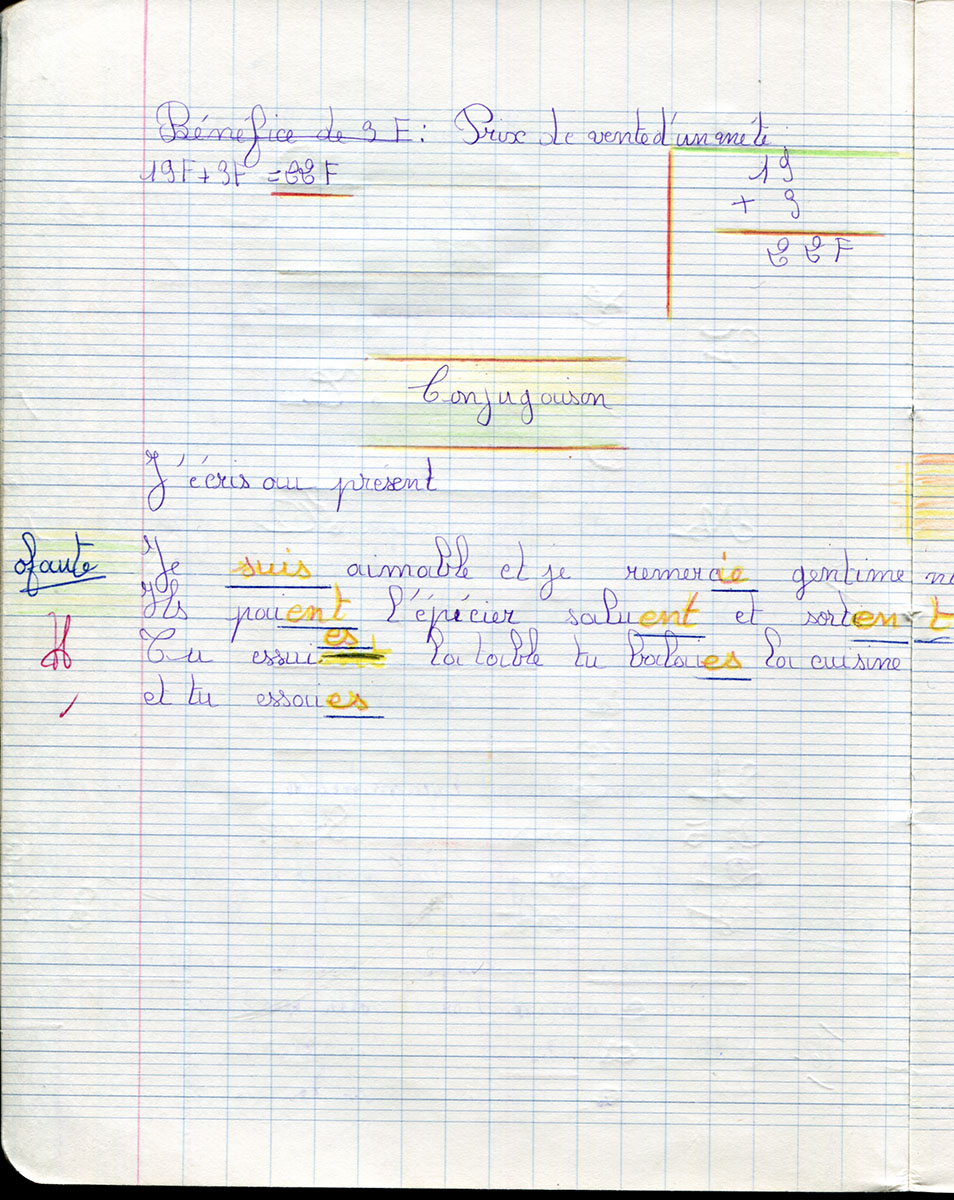 Bénéfice de 3 F : Prix de vente d'un
19F + 3F = 22 F
19
+ 3
22F
Conjugaison
J'écris au présent
0 faute
Je suis aimable et je remercie gentime
Ils paient l'épicier saluent et sortent
Tu essuies la table tu balaies la cuisine
et tu essaies